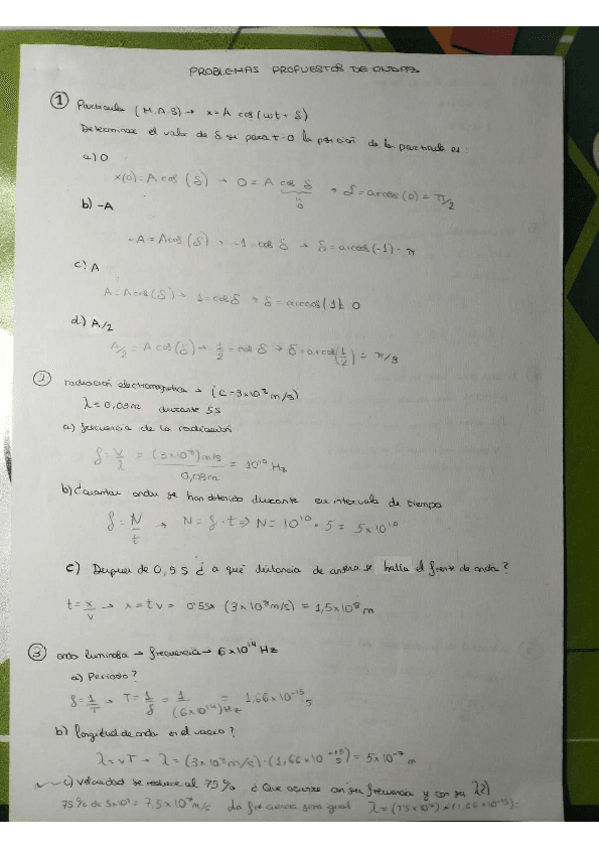 PROBLEMAS PROPUESTOS DE ONDAS
① Particula (M.A.S) → x = A cos (ωt + δ)
Determinar el valor de δ si para t=0 la posición de la particula es:
a) 0
x(0) = A cos (δ) → 0 = A cos δ → δ = arccos (0) = π/2
"
0
b) -A
-A = A cos (δ) → -1 = cos δ → δ = arccos (-1) = π
c) A
A = A cos (δ) → 1 = cos δ → δ = arccos (1) = 0
d) A/2
A/2 = A cos (δ) → 1/2 = cos δ → δ = arcos (1/2) = π/3
② radiación electromagnetica → (c = 3×10⁸ m/s)
λ = 0,03 m durante 5s
a) frecuencia de la radiación
f = v/λ = (3×10⁸) m/s / 0,03m = 10¹⁰ Hz
b) ¿cuantas ondas se han detenido durante en intervalo de tiempo
f = N/t → N = f · t ⇒ N = 10¹⁰ · 5 = 5×10¹⁰
c) Despues de 0,5 s ¿a qué distancia de antena se halla el frente de onda?
t = x/v → x = t v = 0'5s · (3×10⁸ m/s) = 1,5×10⁸ m
③ onda luminosa → frecuencia → 6×10¹⁴ Hz
a) Periodo?
f = 1/T → T = 1/f = 1/(6×10¹⁴) Hz = 1,66×10⁻¹⁵ s
b) longitud de onda en el vacio?
λ = vT → λ = (3×10⁸ m/s) · (1,66×10⁻¹⁵ s) = 5×10⁻⁷ m
c) Velocidad se reduce al 75% ¿Que ocurre con su frecuencia y con su λ?
75% de 3×10⁸ = 7,5×10⁷ m/s la frecuencia igual λ =